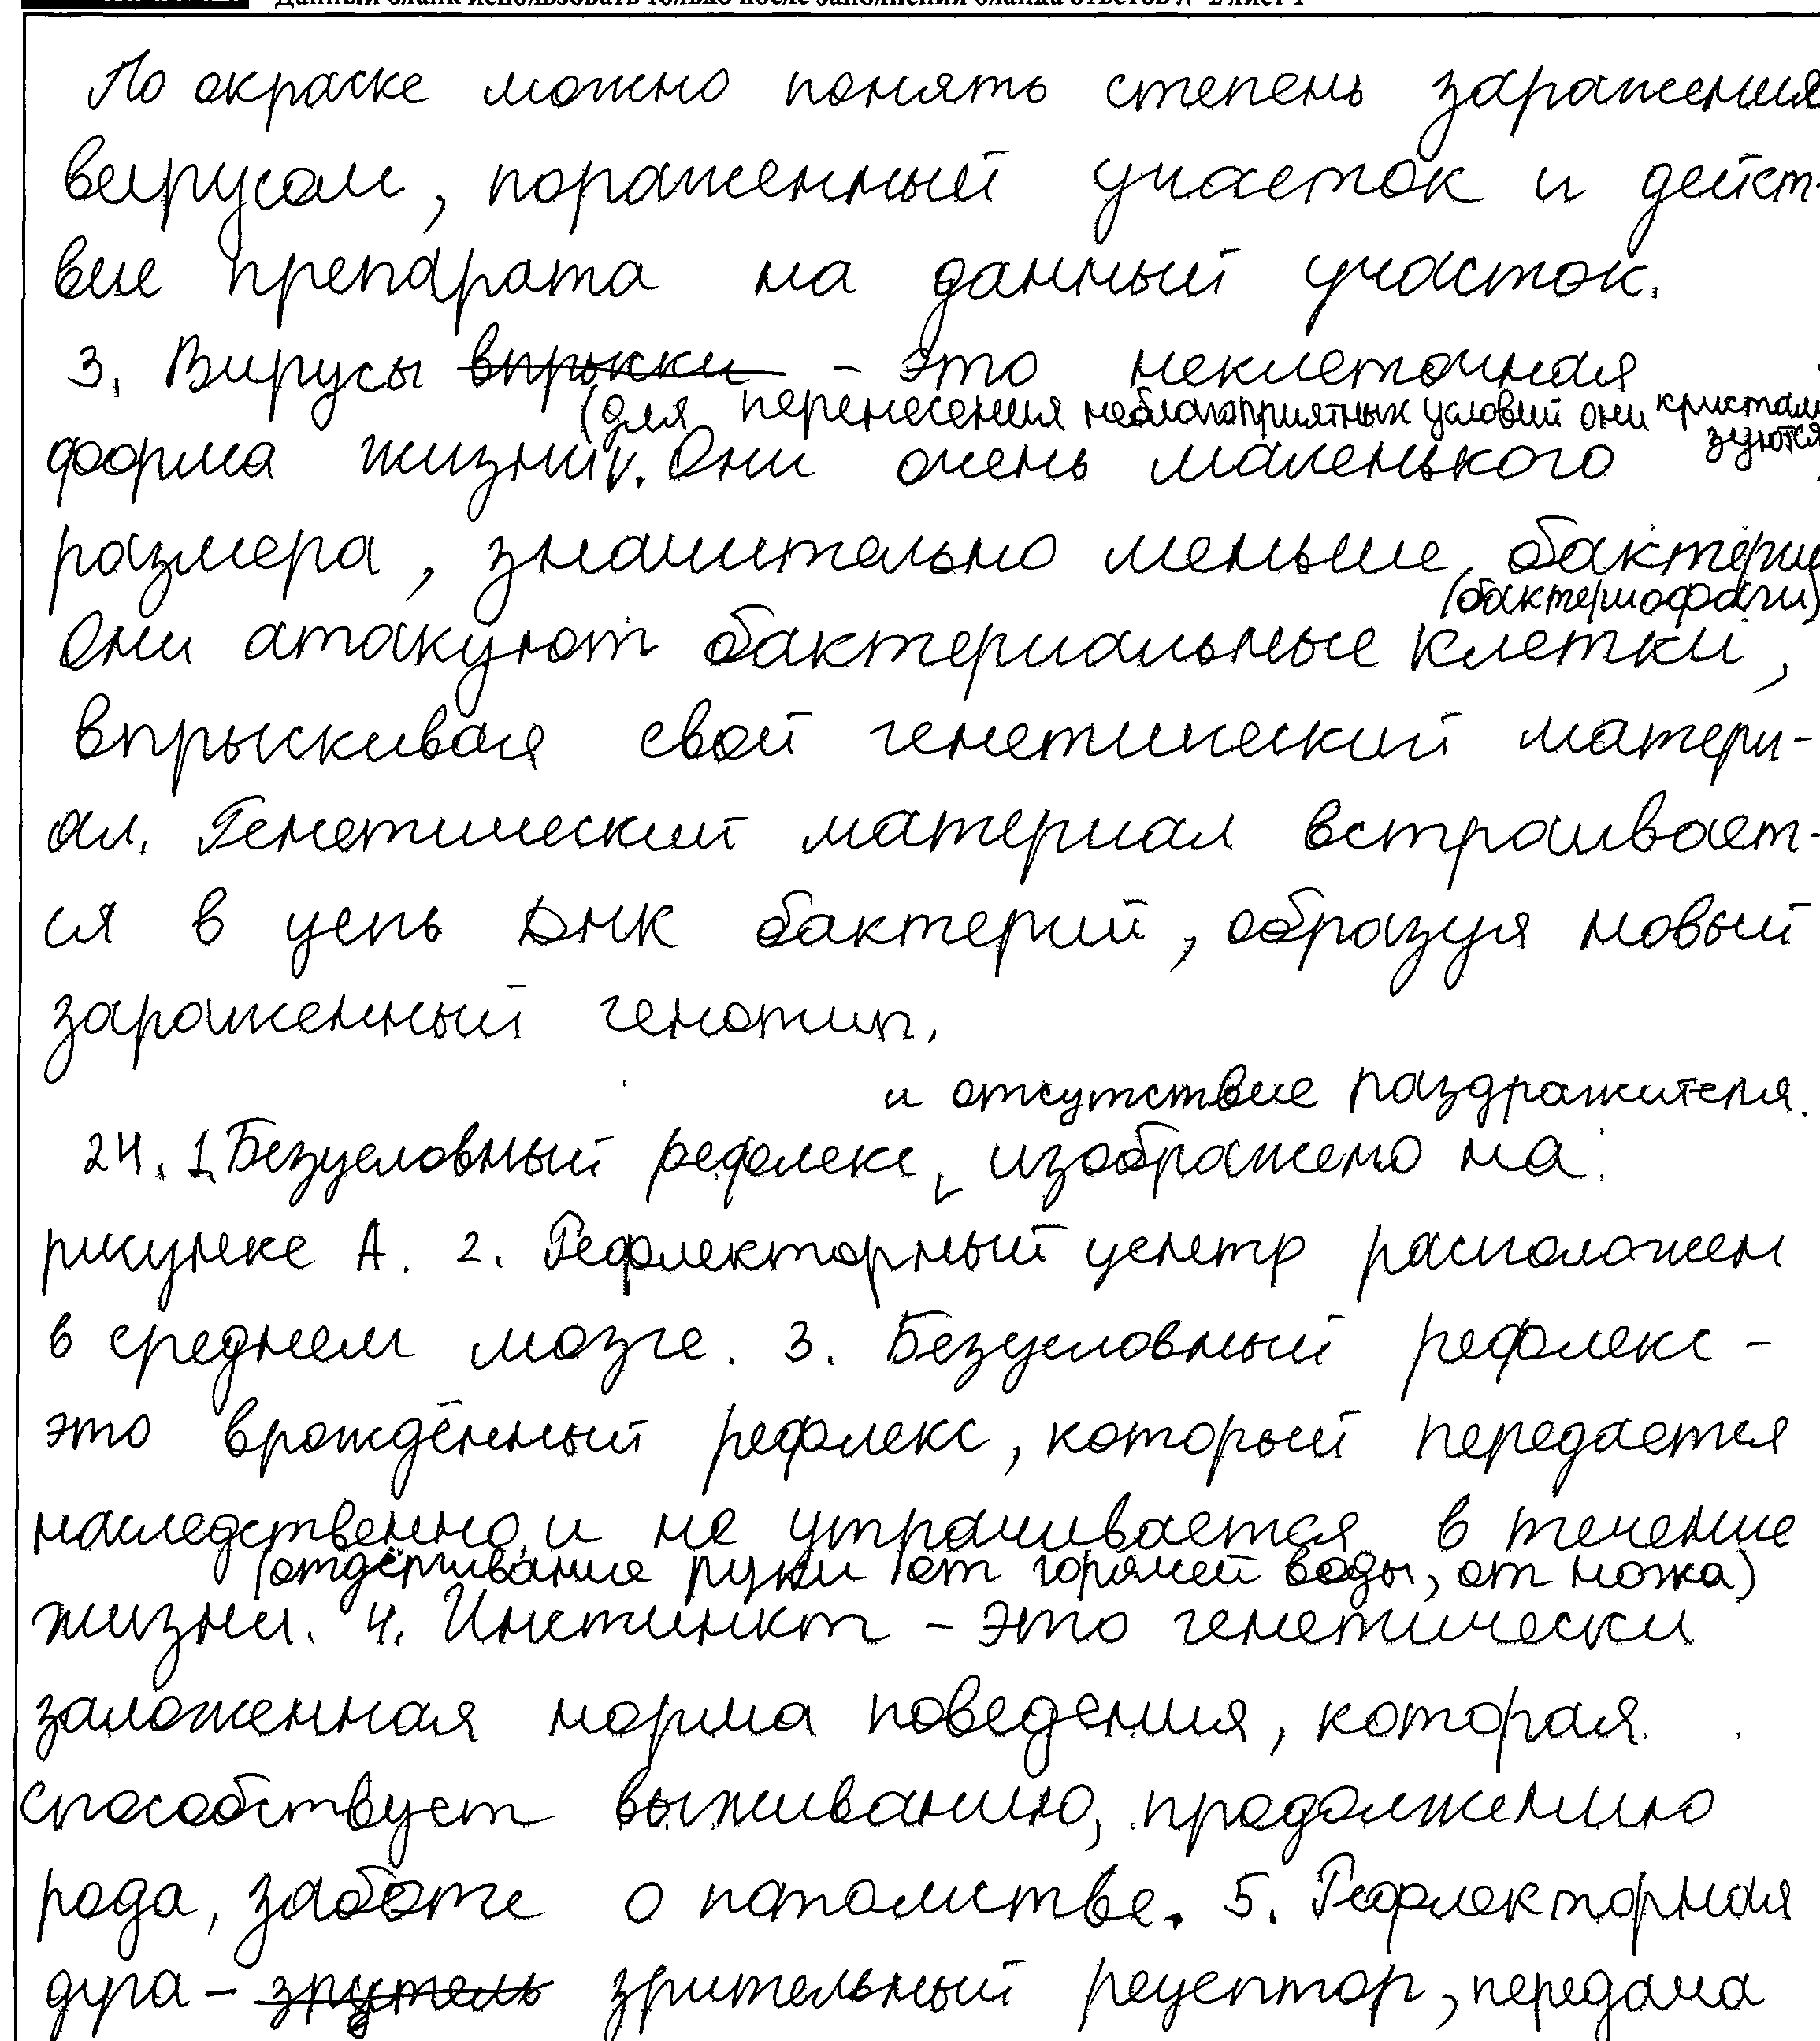 Данный бланк использовать только после заполнения бланка ответов № 2 лист 1
По окраске можно понять степень заражения
вирусом, пораженный участок и дейст-
вие препарата на данный участок.
3. Вирусы впрыски - это неклеточная
(для перенесения неблагоприятных условий они кристали
зуются
форма жизни. Они очень маленького
размера, значительно меньше бактерии
(бактериофаги)
Они атакуют бактериальные клетки,
впрыскивая свой генетический матери-
ал. Генетический материал встраивает-
ся в цепь ДНК бактерий, образуя новый
зараженный генотип.
и отсутствие раздражителя.
24. 1. Безусловный рефлекс, изображено на
рисунке А. 2. Рефлекторный центр расположен
в среднем мозге. 3. Безусловный рефлекс -
это врождённый рефлекс, который передается
наследственно и не утрачивается в течение
(отдёргивание руки от горячей воды, от ножа)
жизни. 4. Инстинкт - это генетически
заложенная норма поведения, которая
способствует выживанию, продолжению
рода, заботе о потомстве. 5. Рефлекторная
дуга - зритель зрительный рецептор, передача